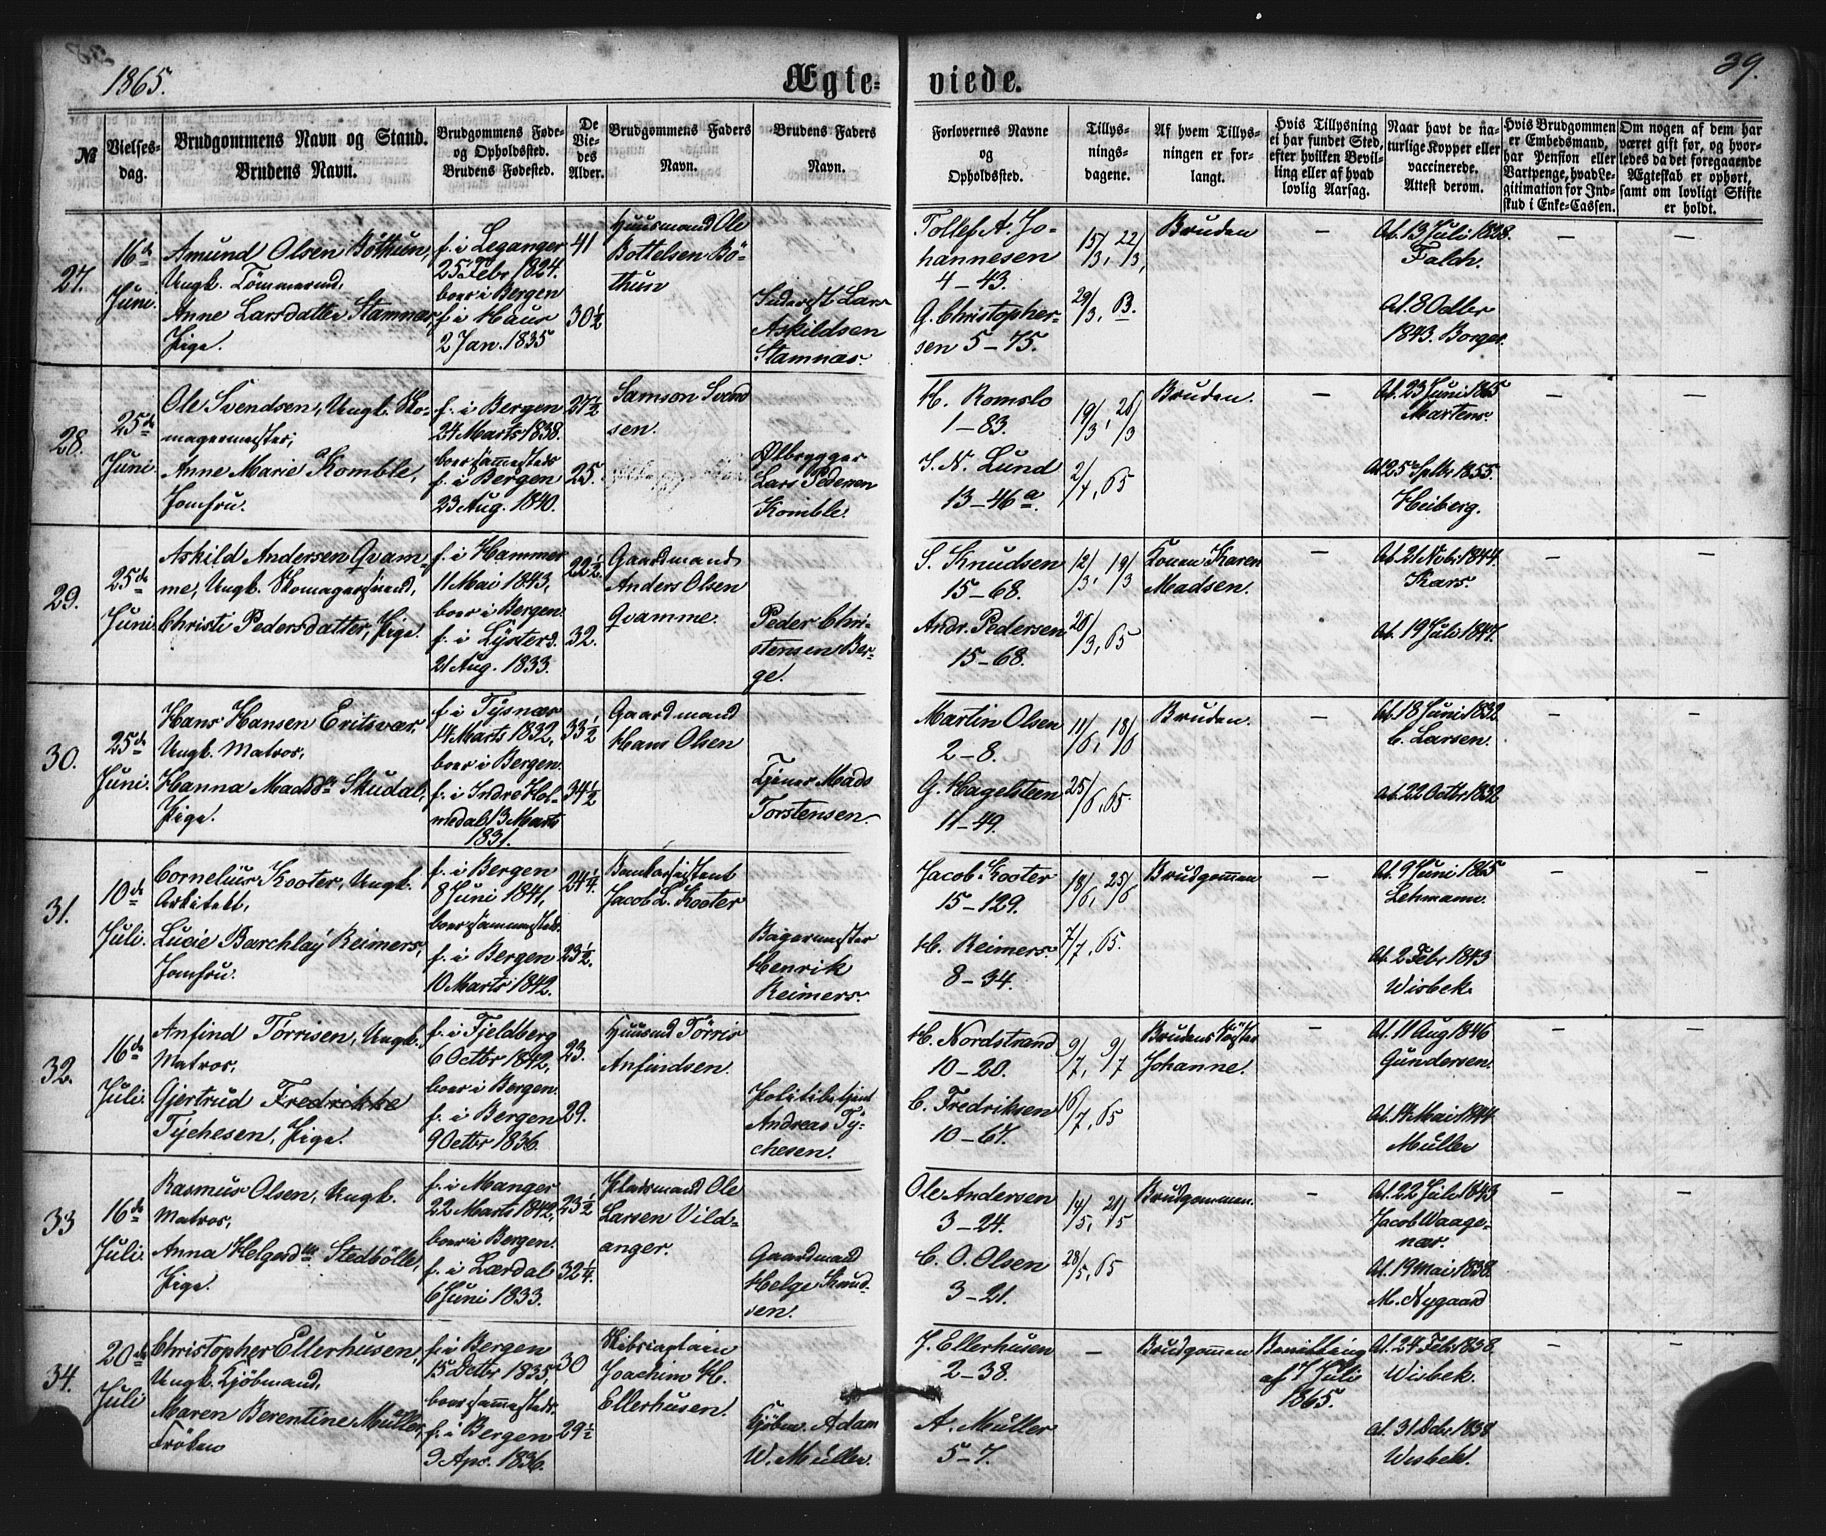 1865.
Ægte-
viede.
39.
No
Vielses-
dag.
Brudgommens Navn og Stand.
Brudens Navn.
Brudgommens Føde-
og Opholdssted.
Brudens Fødested.
De
Vie-
des
Alder.
Brudgommens Faders
Navn.
Brudens Faders
Navn.
Forlovernes Navne
og
Opholdssted.
Tillys-
nings-
dagene.
Af hvem Tillys-
ningen er for-
langt.
Hvis Tillysning
ei har fundet Sted,
efter hvilken Bevil-
ling eller af hvad
lovlig Aarsag.
Naar havt de na-
turlige Kopper eller
vaccinerede.
Attest derom.
Hvis Brudgommen
er Embedsmand,
har Pension eller
Vartpenge, hvad Le-
gitimation for Ind-
skud i Enke-Cassen.
Om nogen af dem har
været gift før, og hvor-
ledes da det foregaaende
Ægteskab er ophørt,
samt om lovligt Skifte
er holdt.
27.
16de
Juni
Amund Olsen Böthun,
Ungk. Tömmermd,
Anne Larsdatter Stamnæs,
Pige.
f. i Leganger
25 Febr 1824.
boer i Bergen
f. i Haus
2 Jan. 1835
41
30½
Huusmand Ole
Bottelsen Bö-
thun
Lars
Askildsen
Stamnæs.
Tollef A. Jo-
hannesen
4-43.
G. Christopher-
sen 5-75.
15/3, 22/3,
29/3, 63.
Bruden
–
At. 13 Juli 1828.
Falch.
At. 8 Odbr
1843. Borges.
–
–
28.
25de
Juni.
Ole Svendsen, Ungk. Sko-
magermester,
Anne Marie Komble,
Jomfru.
f. i Bergen
24 Marts 1838.
boer sammesteds
f. i Bergen
23 Aug. 1840.
27½
25.
Samson Svend
sen.
Ølbrygger
Lars Pedersen
Komble.
H. Romslo
1-83.
S. N. Lund
13-46a.
19/3, 26/3
2/4, 65
Bruden.
–
At. 23 Juni 1865
Martens.
At 25 Sptbr 1855.
Heiberg.
–
–
29.
25de
Juni.
Askild Andersen Qvam-
me, Ungk. Skomagersvend,
Christi Pedersdatter, Pige.
f. i Hammer
11 Mai 1843,
boer i Bergen
f. i Lyster d.
21 Aug. 1833.
22½.
32.
Gaardmand
Anders Olsen
Qvamme.
Peder Chri-
stensen Ber-
ge.
S. Knudsen
15-68.
Andr. Pedersen
15-68.
12/3, 19/3
26/3, 65
Konen Karen
Madsen.
–
At. 21 Novb. 1844.
Kars.
At. 19 Juli 1847.
–
–
30.
25de
Juni.
Hans Hansen Eritsvær,
Ungk. Matros,
Hanna Madsdtr Skudal,
Pige.
f. i Tysnæs
14 Marts 1832,
boer i Bergen.
f. i Indre Hol-
medal 13 Marts
1831.
33½
34½
Gaardmand
Hans Olsen
Tjener Mads
Torstensen.
Martin Olsen
2-8.
G. Hagelsteen
11-49.
11/6, 18/6
25/6, 65.
Bruden.
–
At. 18 Juni 1832.
C. Larsen.
At. 22 Octbr 1832
–
–
31.
10de
Juli.
Cornelius Kooter, Ungk.
Arkitekt,
Lucie Barchlay Reimers,
Jomfru.
f. i Bergen
8 Juni 1841,
boer sammesteds.
f. i Bergen
10 Marts 1842.
24¼.
23½.
Bankassistent
Jacob L. Kooter
Bagermester
Henrik
Reimers.
Jacob Kooter
15-129.
H. Reimers.
8-34.
18/6, 25/6
7/7, 65.
Brudgommen
–
At. 9 Juni 1865
Lehmann.
At. 2 Febr 1843
Wisbek.
–
–
32.
16de
Juli.
Anfind Törrisen, Ungk.
Matros,
Gjertrud Fredrikke
Tychesen, Pige.
f. i Fjeldberg
6 Octbr 1842,
boer i Bergen.
f. i Bergen
9 Octbr 1836.
23.
29.
Huusmd Törris
Anfindsen.
Politibetjent
Andreas Ty-
chesen.
H. Nordstrand
10-20.
C. Fredriksen
10-67.
9/7, 9/7
16/7, 65
Brudens Söster
Johanne.
–
At. 11 Aug 1846
Gundersen.
At. 14 Mai 1844
Müller
–
–
33
16de
Juli.
Rasmus Olsen, Ungk.
Matros,
Anna Helgesdtr Stedbölle,
Pige.
f. i Manger
22 Marts 1842,
boer i Bergen.
f. i Lærdal
6 Juni 1833.
23½
32¼.
Pladsmand Ole
Larsen Vild-
anger.
Gaardmand
Helge Knud-
sen.
Ole Andersen
3-24.
C. O. Olsen
3-21.
14/5, 21/5
28/5, 65
Brudgommen.
–
At. 22 Juli 1843
Jacob Waage-
nær.
At. 19 Mai 1838.
M. Nygaard
–
–
34.
20de
Juli
Christopher Ellerhusen,
Ungk. Kjöbmand,
Maren Berentine Müller,
Fröken
f. i Bergen
15 Octbr 1835,
boer sammesteds.
f. i Bergen
3 Apr. 1836.
30
29½
Skibscaptain
Joachim H.
Ellerhusen.
Kjöbm. Adam
W. Müller.
J. Ellerhusen
2-38.
A. Müller
5-7.
–
Brudgommen
Bevilling
af 7 Juli
1865.
At. 24 Febr 1838.
Wisbek.
At. 31 Dcbr 1838
Wisbek.